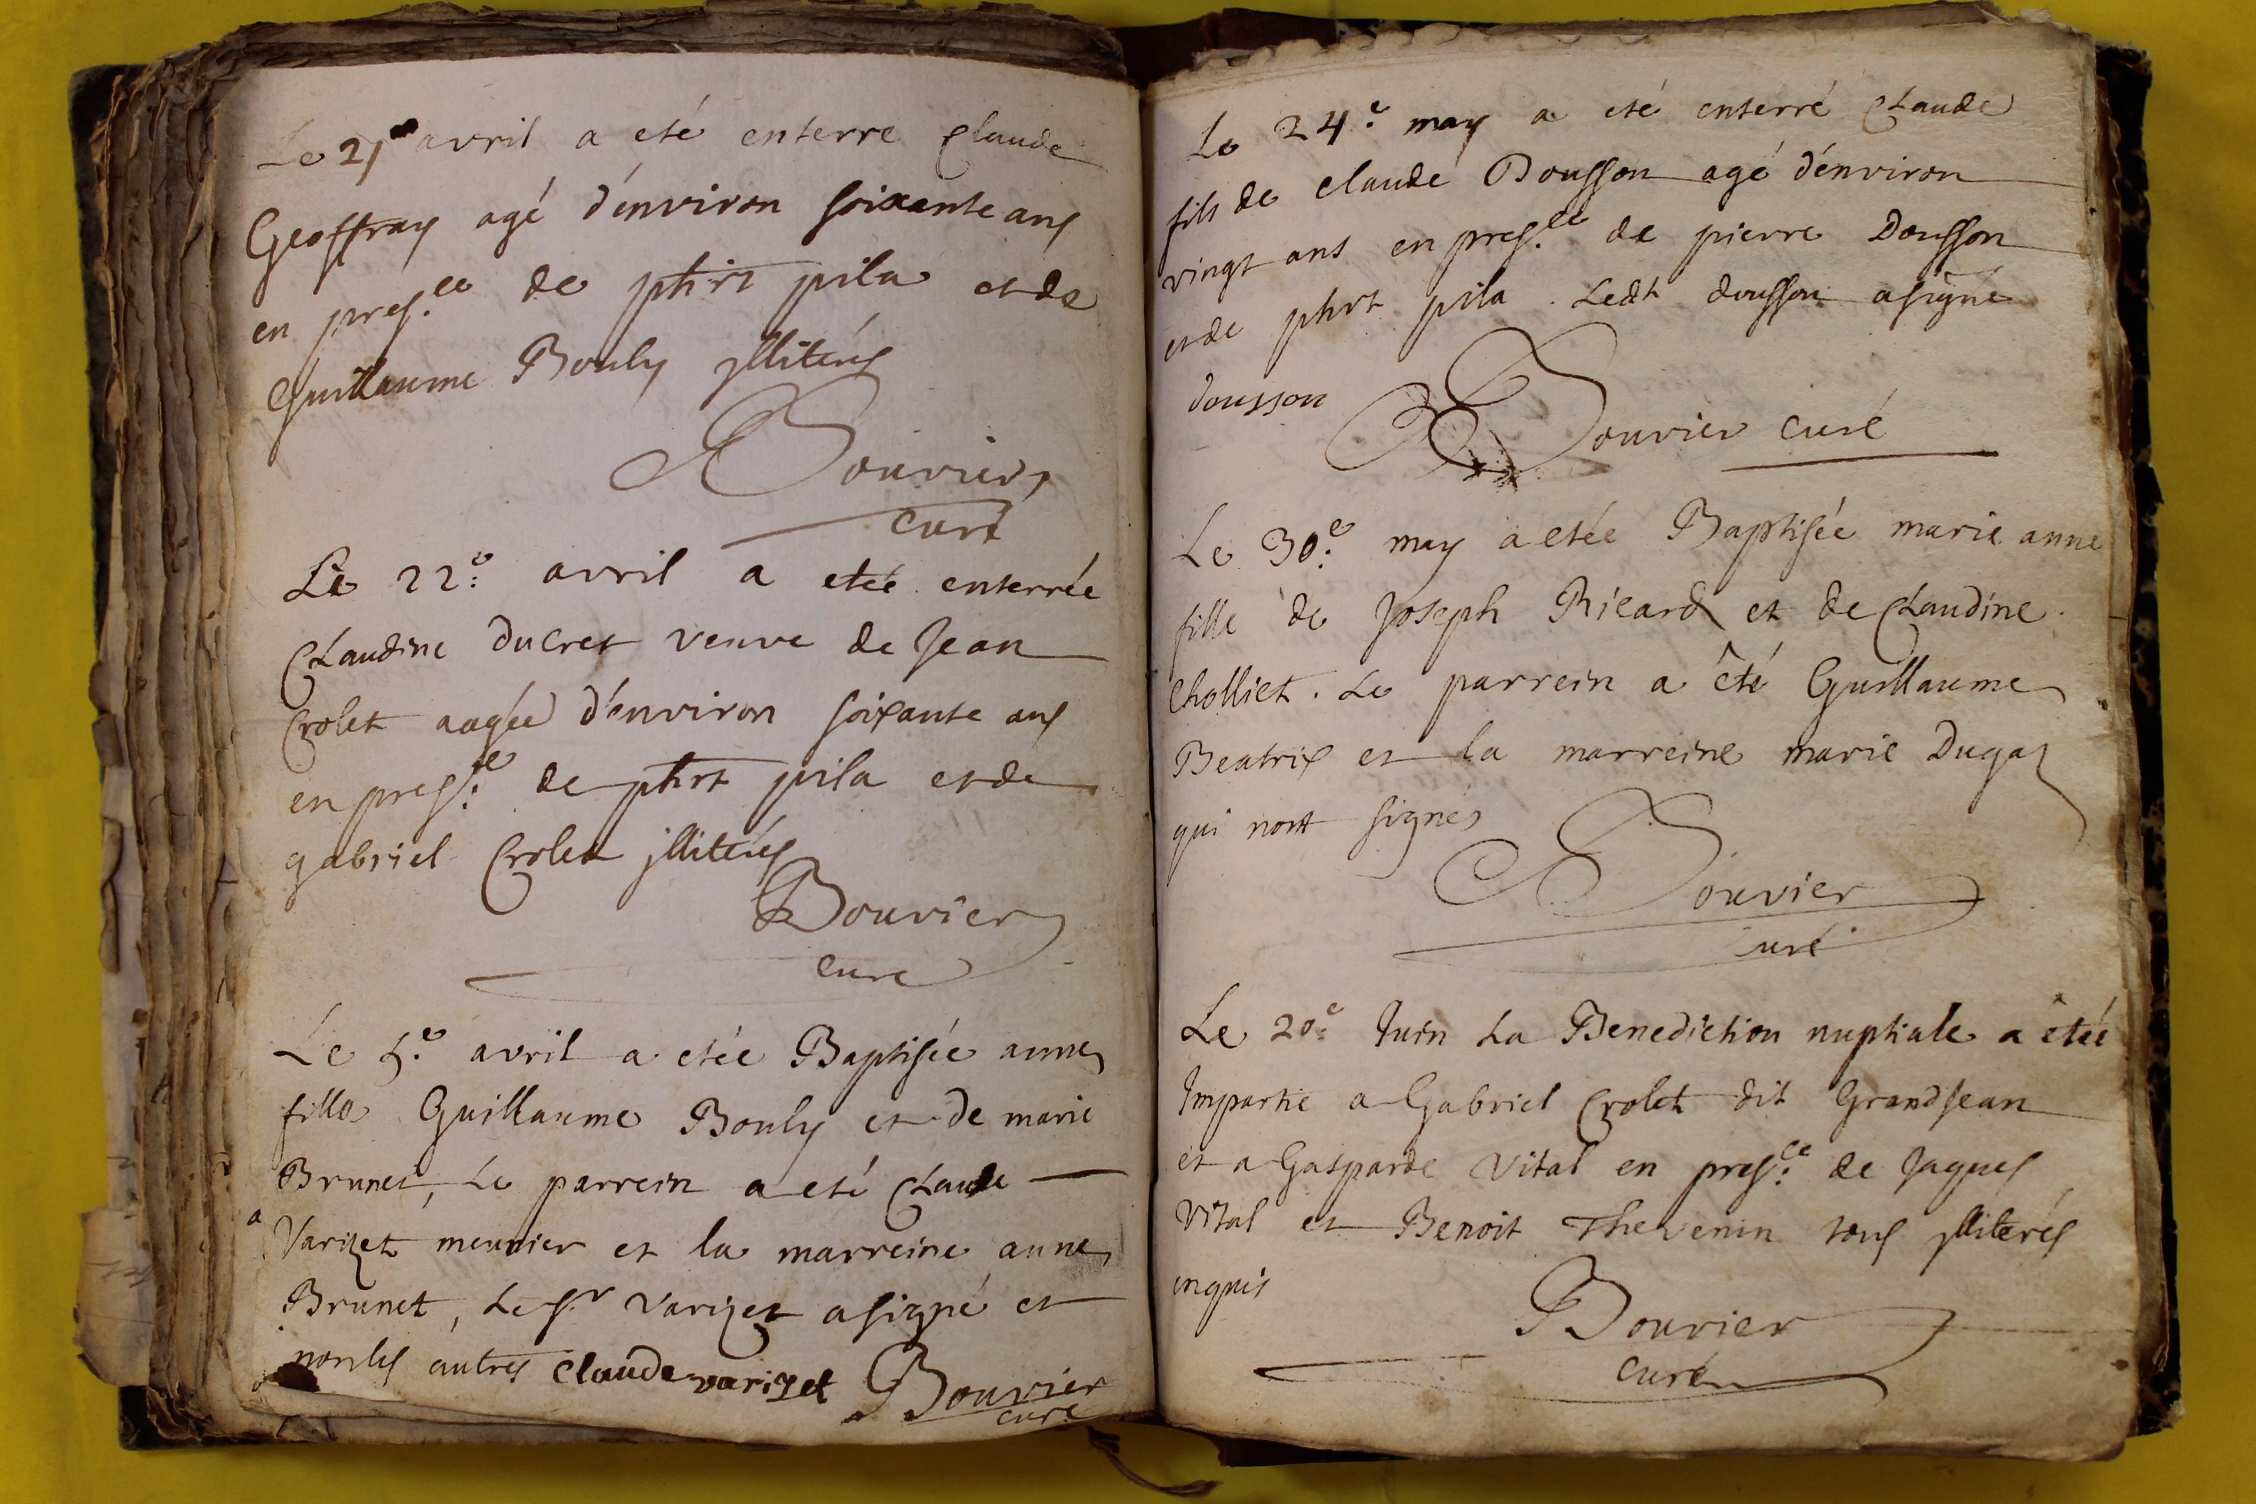 Le 21 avril a eté enterre Claude
Geoffray agé d'énviron soixante ans
en pres.ce de phirt pila et de
Guillaume Bouly jllitérés
Bouvier
curé
Le 22.e avril a etée enterrée
Claudine Ducret veuve de Jean
Crolet aagée d'énviron soixante ans
en pres.ce de phirt pila et de
gabriel Crolet jllitérés
Bouvier
cure
Le 5.e avril a etée Baptisée anne
fille Guillaume Bouly et de marie
Brunet, Le parrein a eté Claude
Varizet meunier et la marreine anne
Brunet, Le sr Varizet a signé et
non les autres Claude varizet Bouvier
cure
Le 24.e may a eté enterré Claude
fils de Claude Dousson agé d'énviron
vingt ans en pres.ce de pierre Dousson
et de phirt pila. Ledt dousson a signé
dousson Bouvier curé
Le 30.e may a etée Baptisée marie anne
fille de Joseph Ricard et de Claudine
Cholliet. Le parrein a êté Guillaume
Beatrix et la marreine marie Dugaz
qui nont signés
Bouvier
curé
Le 20.e Juin La Benediction nuptiale a êtée
Impartie a Gabriel Crolet dit GrandJean
et a Gasparde Vital en pres.ce de Jaques
Vital et Benoit Thevenin tous jlliterés
enquis
Bouvier
curé